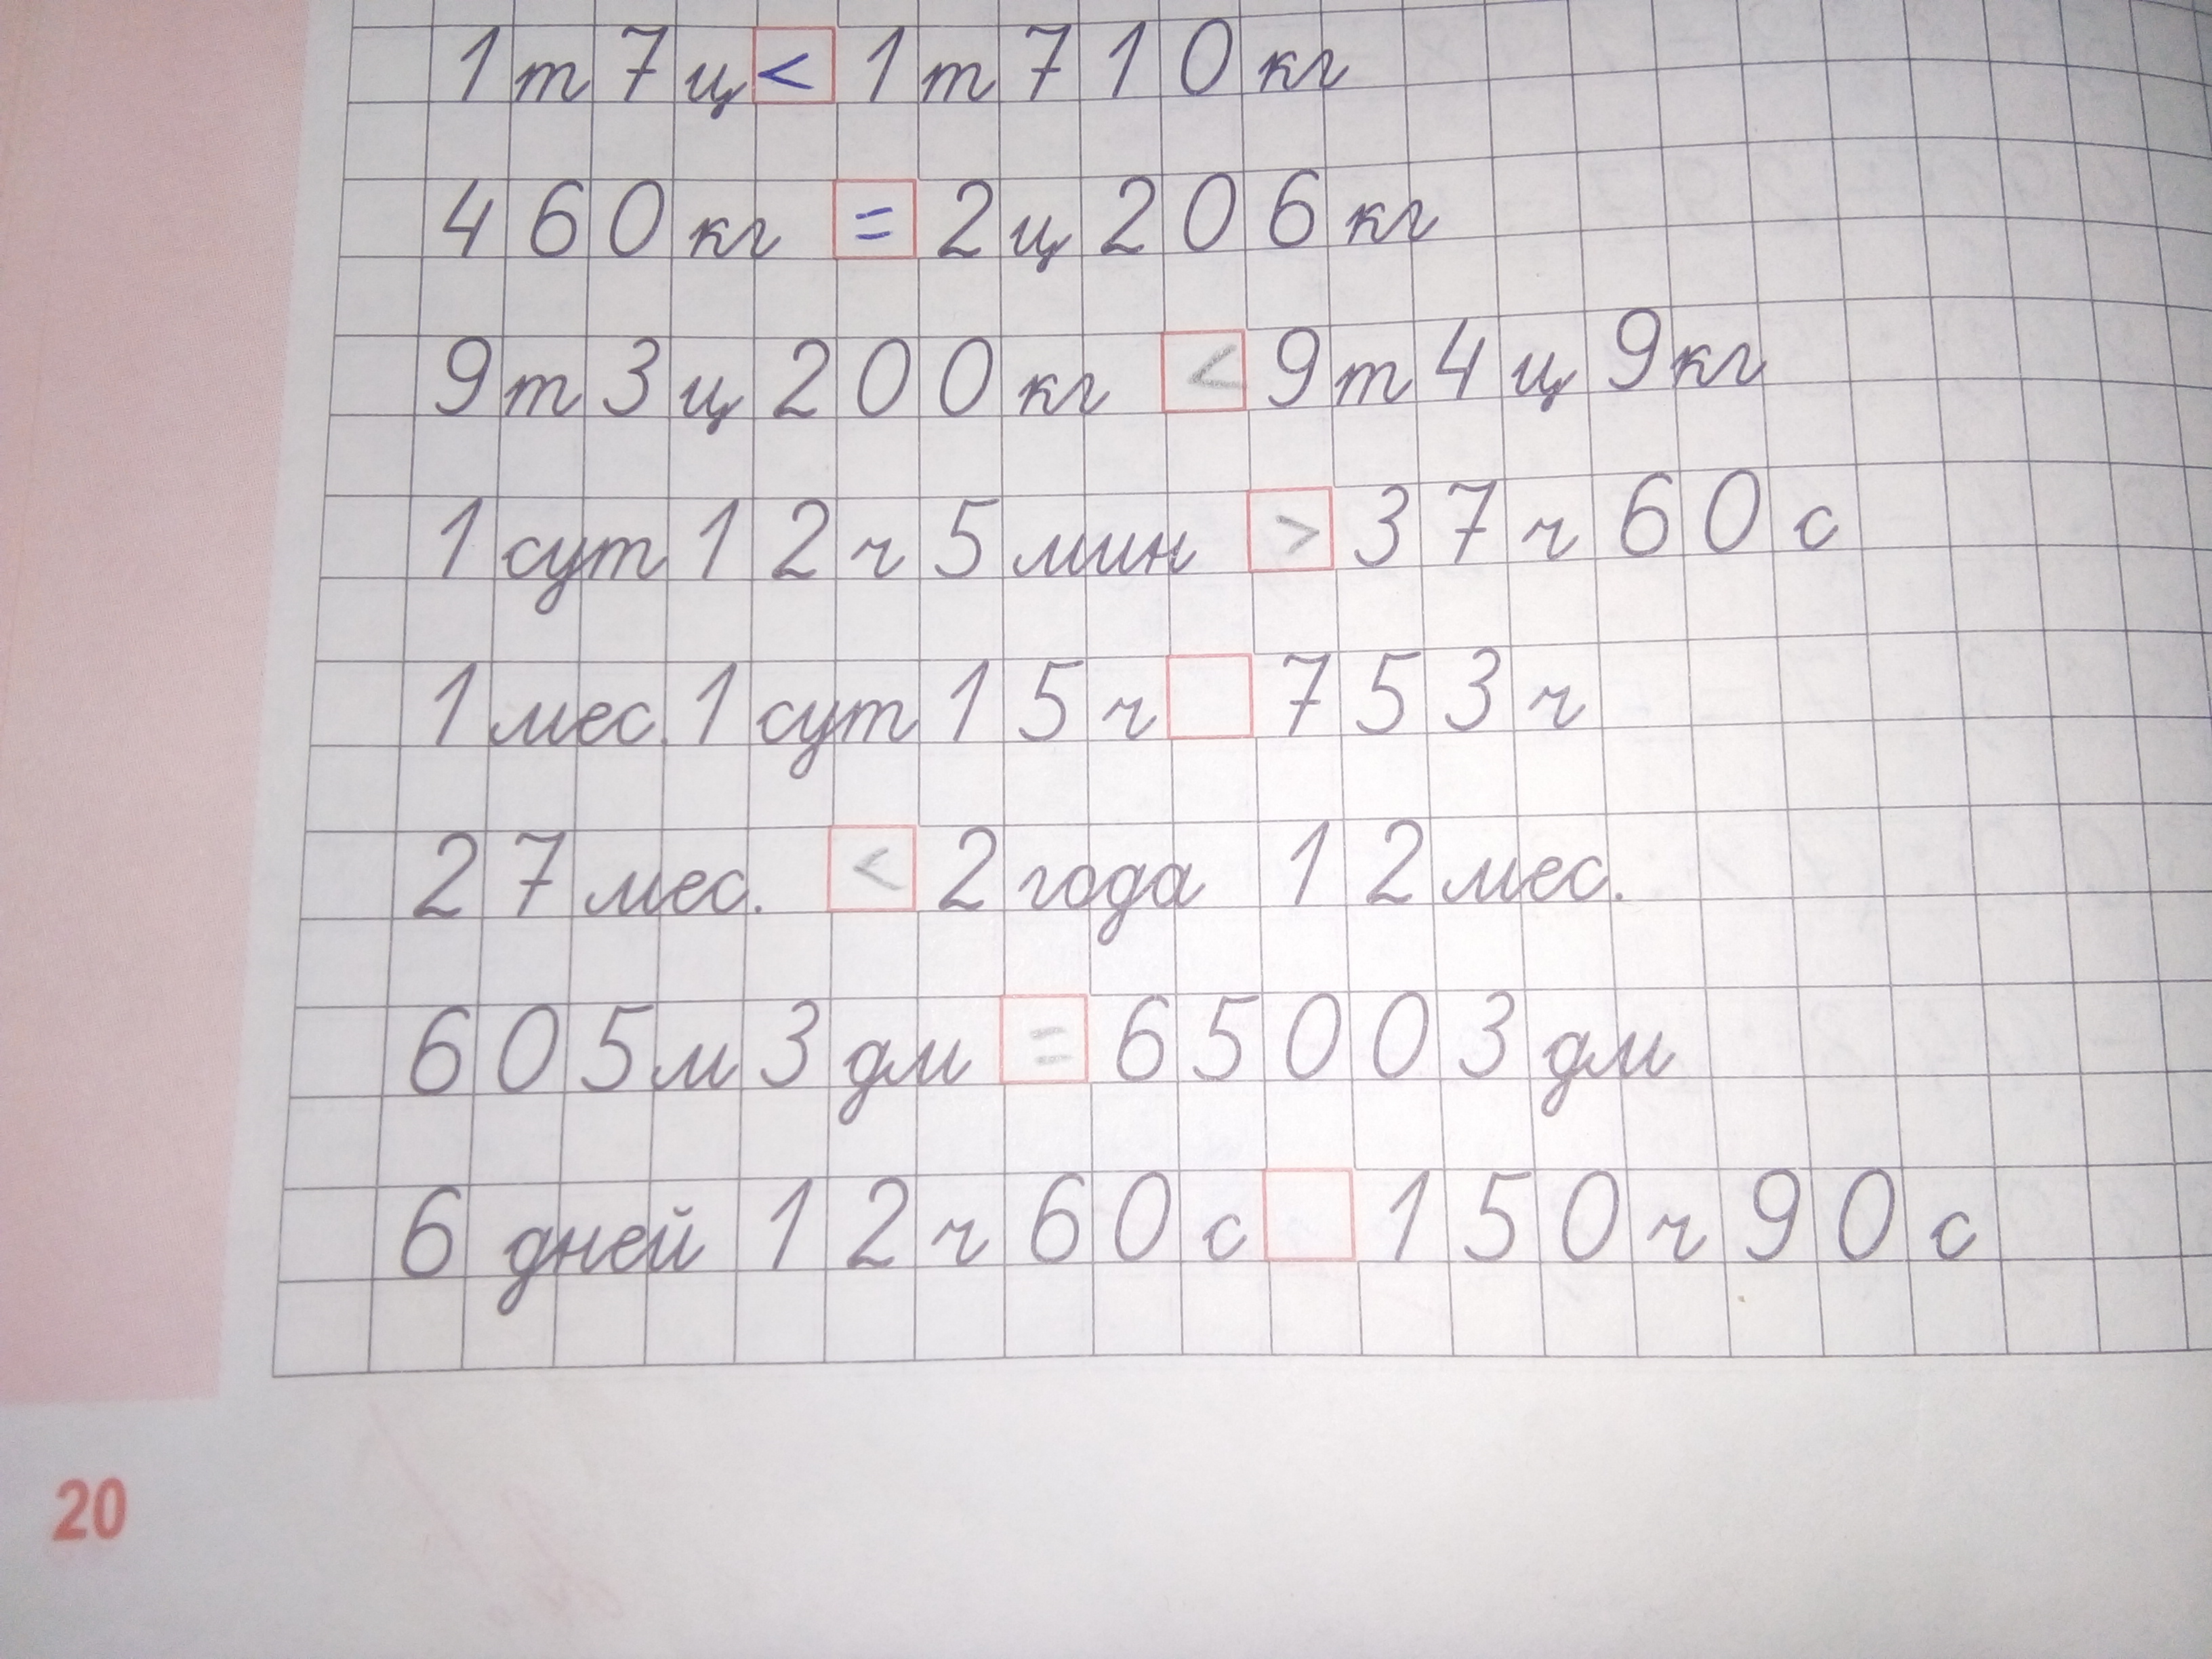 1т 7ц < 1т 710кг
460кг = 2ц 206кг
9т 3ц 200кг < 9т 4ц 9кг
1сут 12ч 5мин > 37ч 60с
1мес. 1сут 15ч 753ч
27мес. < 2года 12мес.
605м 3дм = 65003дм
6 дней 12ч 60с 150ч 90с
20